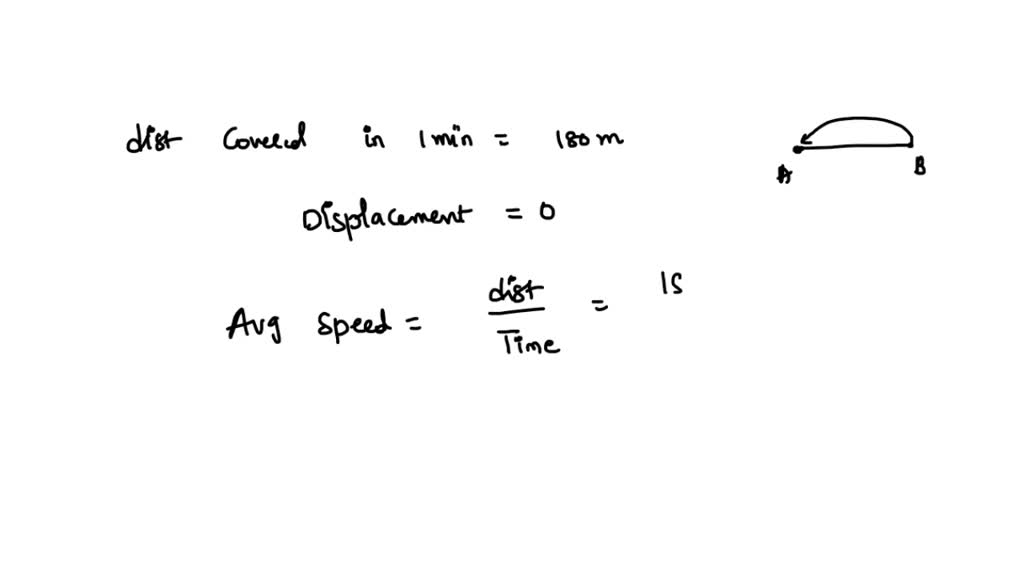 dist Covered in 1 min = 180 m
A B
Displacement = 0
Avg Speed = dist / Time = 18